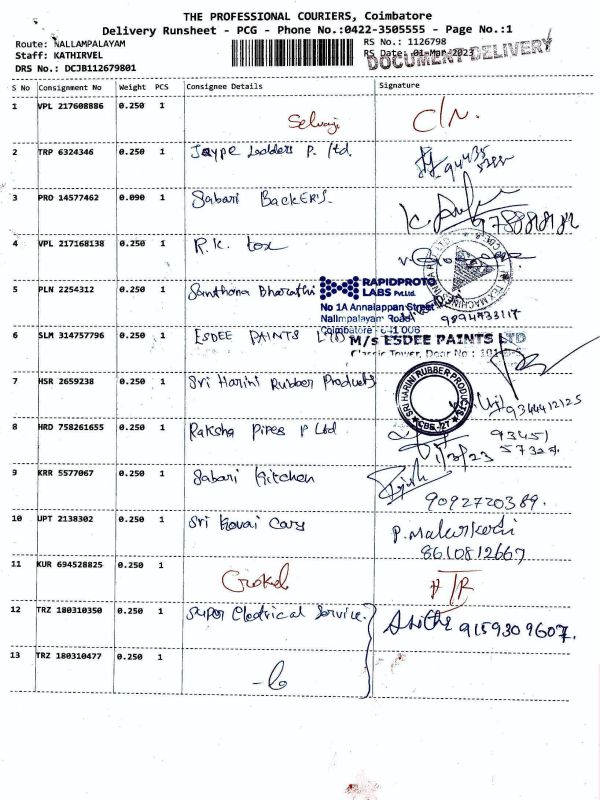 THE PROFESSIONAL COURIERS, Coimbatore
Delivery Runsheet - PCG - Phone No.:0422-3505555 - Page No.:1
Route: NALLAMPALAYAM
Staff: KATHIRVEL
DRS No.: DCJB112679801
RS No.: 1126798
RS Date: 01-Mar-2023
DOCUMENT DELIVERY
S No Consignment No Weight PCS Consignee Details Signature
1 VPL 217608886 0.250 1 Selvaji C/N.
2 TRP 6324346 0.250 1 Jaype Ladders P. ltd. 94435
3 PRO 14577462 0.090 1 Sabari BackERS.
4 VPL 217168138 0.250 1 R.K. tex
5 PLN 2254312 0.250 1 Santhona Bharathi
RAPIDPROTO
LABS Pvt.Ltd.
No 1A Annaiappan Street
Nallmpalayam Road
Coimbatore - 641 006
9894933117
6 SLM 314757796 0.250 1 ESDEE PAINTS LTD
M/s ESDEE PAINTS LTD
Classic Tower, Door No :
7 HSR 2659238 0.250 1 Sri Harini Rubber Products
SRI HARINI RUBBER PRODUCTS
CBE-27
9344412125
8 HRD 758261655 0.250 1 Raksha Pipes P Ltd 93451
1/3/23
9 KRR 5577067 0.250 1 Sabari Kitchen
9092720389.
10 UPT 2138302 0.250 1 Sri Kovai Cars
8610812667
11 KUR 694528825 0.250 1
12 TRZ 180310350 0.250 1 Super Electrical Service. 9159309607.
13 TRZ 180310477 0.250 1